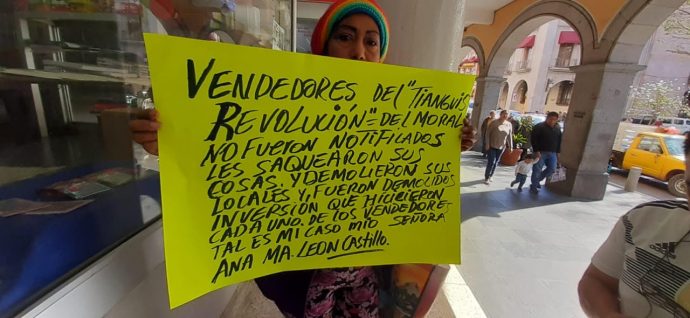 VENDEDORES DEL "TIANGUIS
REVOLUCIÓN" = DEL MORAL
NO FUERON NOTIFICADOS
LES SAQUEARON SUS
COSAS. Y DEMOLIERON SUS
LOCALES Y, FUERON DEMOLIDOS
INVERSIÓN QUE HICIERON
CADA UNO DE LOS VENDEDORES
TAL ES MI CASO MIO SEÑORA
ANA MA. LEON CASTILLO.